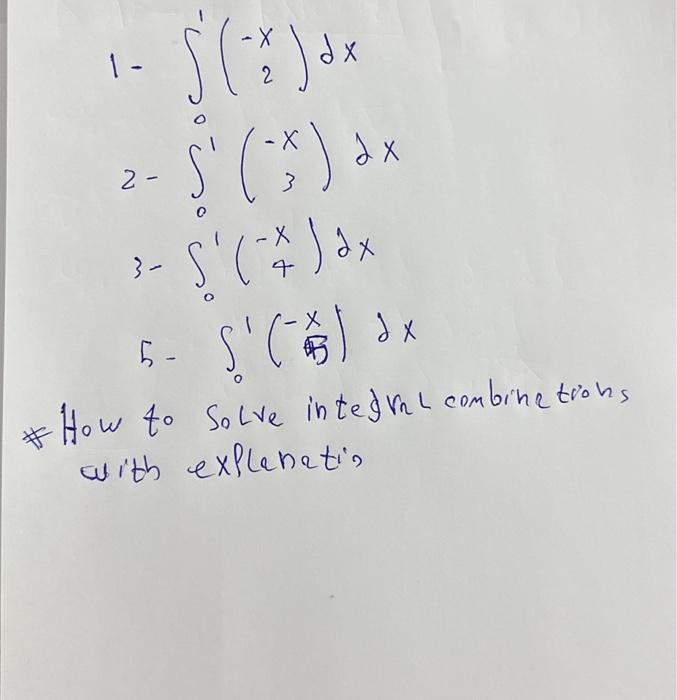 1- ∫₀¹ (-x 2) dx
2- ∫₀¹ (-x 3) dx
3- ∫₀¹ (-x 4) dx
5- ∫₀¹ (-x 5) dx
* How to solve integral combinetions
with explenatio